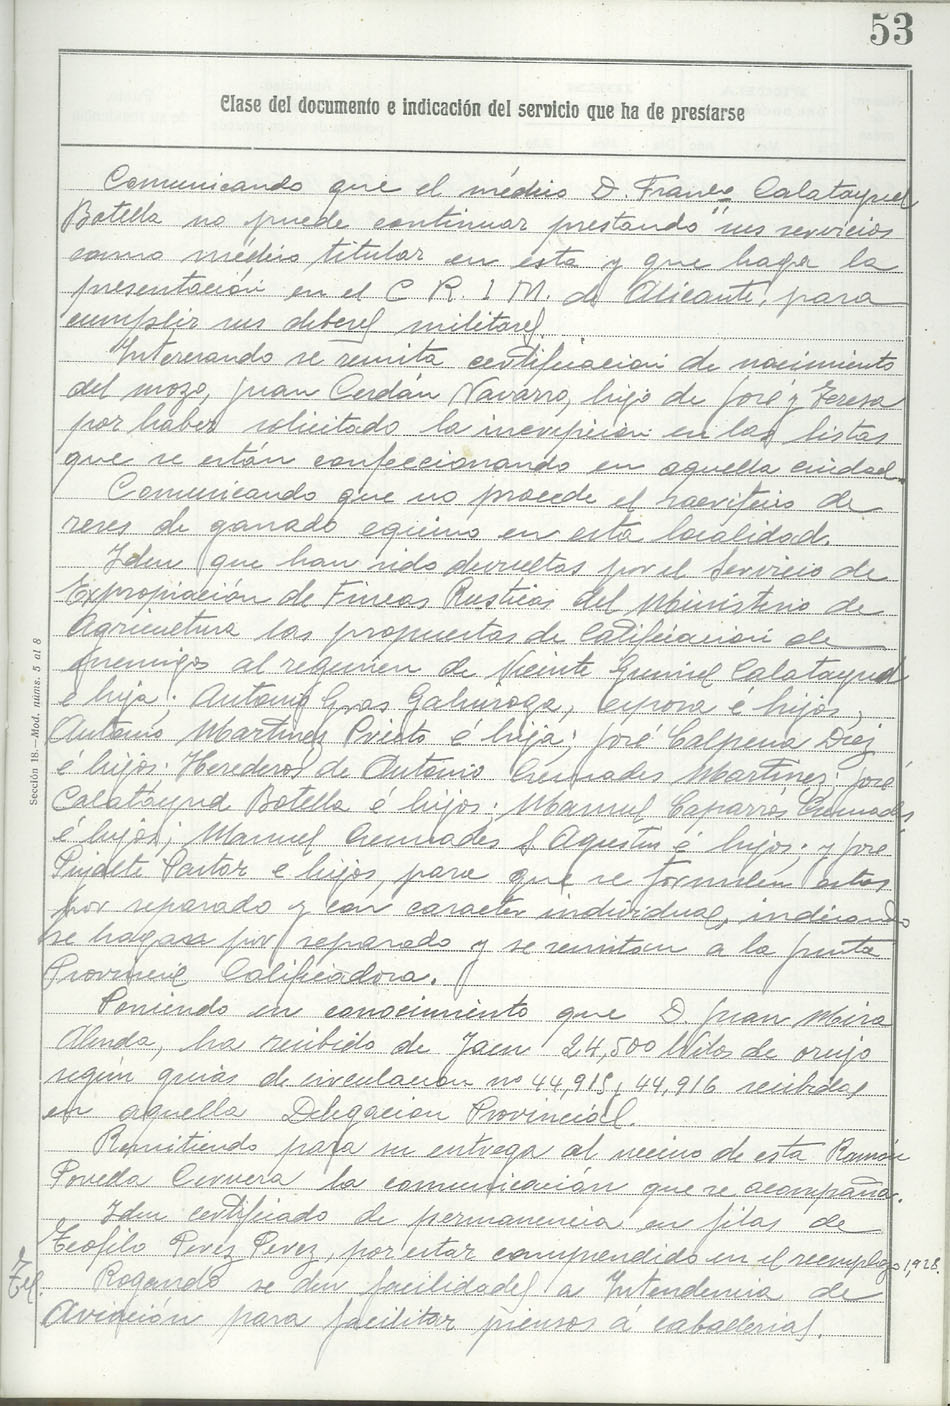 53
Clase del documento e indicación del servicio que ha de prestarse
Comunicando que el médico D. Franco Calatayud
Botella no puede continuar prestando sus servicios
como médico titular en esta y que haga la
presentación en el C R. I M. de Alicante, para
cumplir sus deberes militares.
Interesando se remita certificacion de nacimiento
del mozo, Juan Cerdán Navarro, hijo de José y Teresa
por haber solicitado la inscripcion en las listas
que se están confeccionando en aquella ciudad.
Comunicando que no procede el sacrificio de
reses de ganado equino en esta localidad.
Idem que han sido devueltas por el Servicio de
Expropiación de Fincas Rusticas del Ministerio de
Agricultura las propuestas de Calificacion de
enemigos al regimen de Vicente Calatayud
e hija; Antonio Gras esposa é hijos;
Antonio Martinez Prieto é hija; José Calpena Diez
é hijos; Herederos de Antonio Cremades Martinez; José
Calatayud Botella é hijos; Manuel Caparrós Cremades
é hijos; Manuel Cremades S Agustin é hijos; y José
Pastor e hijos, para que se formulen estas
por separado y con caracter individual, indicando
se hagan por separado y se remitan a la Junta
Provincial Calificadora.
Poniendo en conocimiento que D. Juan Mira
ha recibido de Jaen 24,500 Kilos de orujo
según guias de circulacion nº 44,915, 44,916 recibidas
en aquella Delegacion Provincial.
Remitiendo para su entrega al vecino de esta Ramón
Poveda Cervera la comunicación que se acompaña.
Idem certificado de permanencia en filas de
Teofilo Perez Perez, por estar comprendido en el reemplazo 1,928.
Tel.
Rogando se den facilidades a Intendencia de
Aviación para facilitar piensos á caballerias.
Sección 18.—Mod. núms. 5 al 8